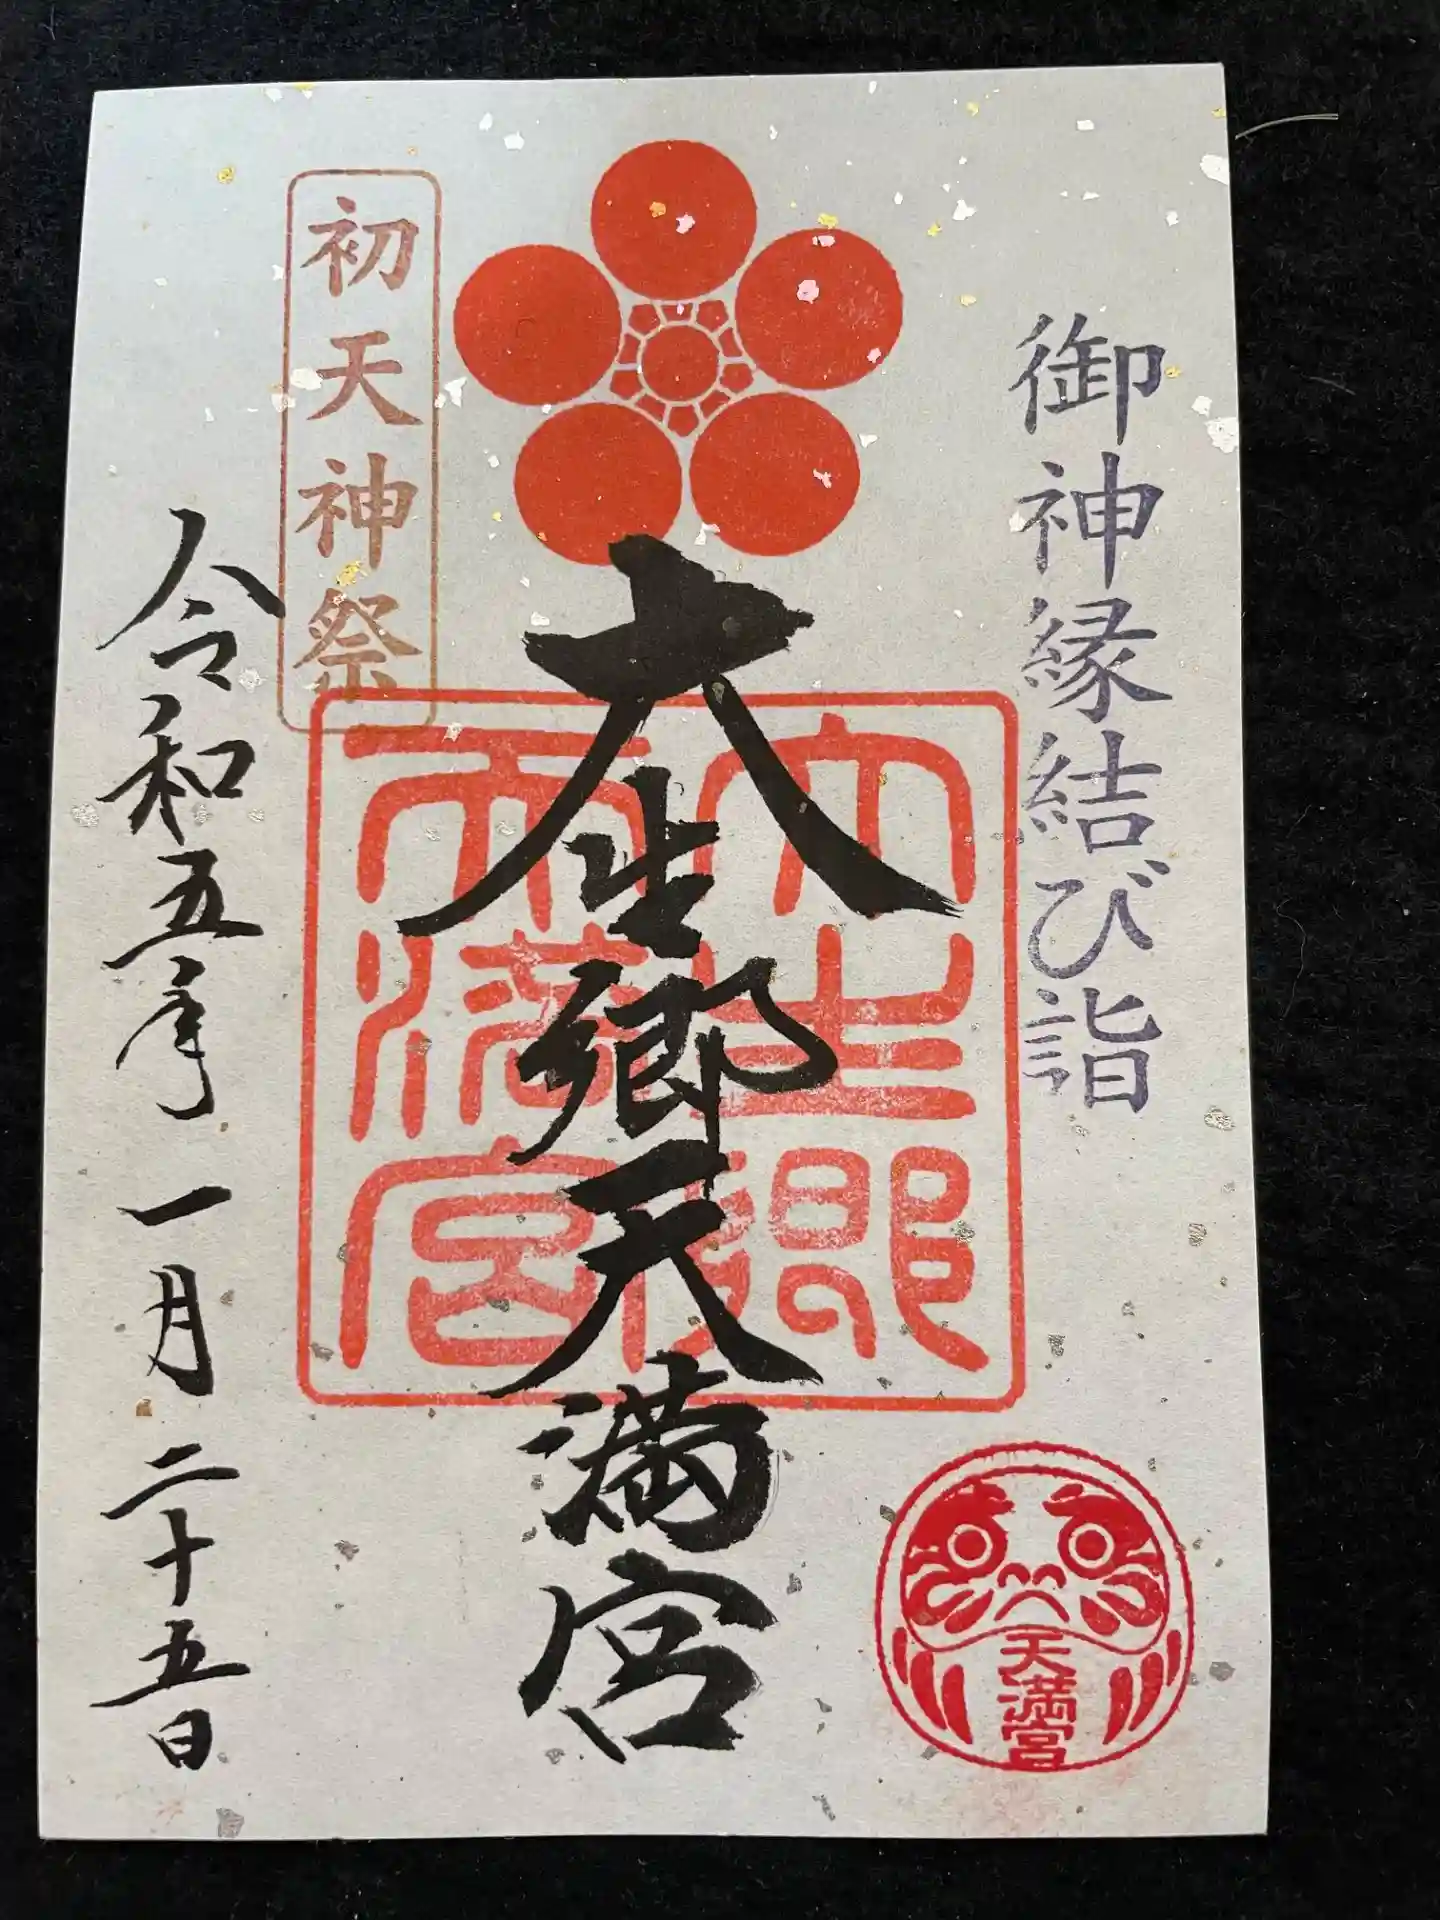 御神縁結び詣
大生郷天満宮
大生郷
天満宮
初天神祭
令和五年一月二十五日
天満宮